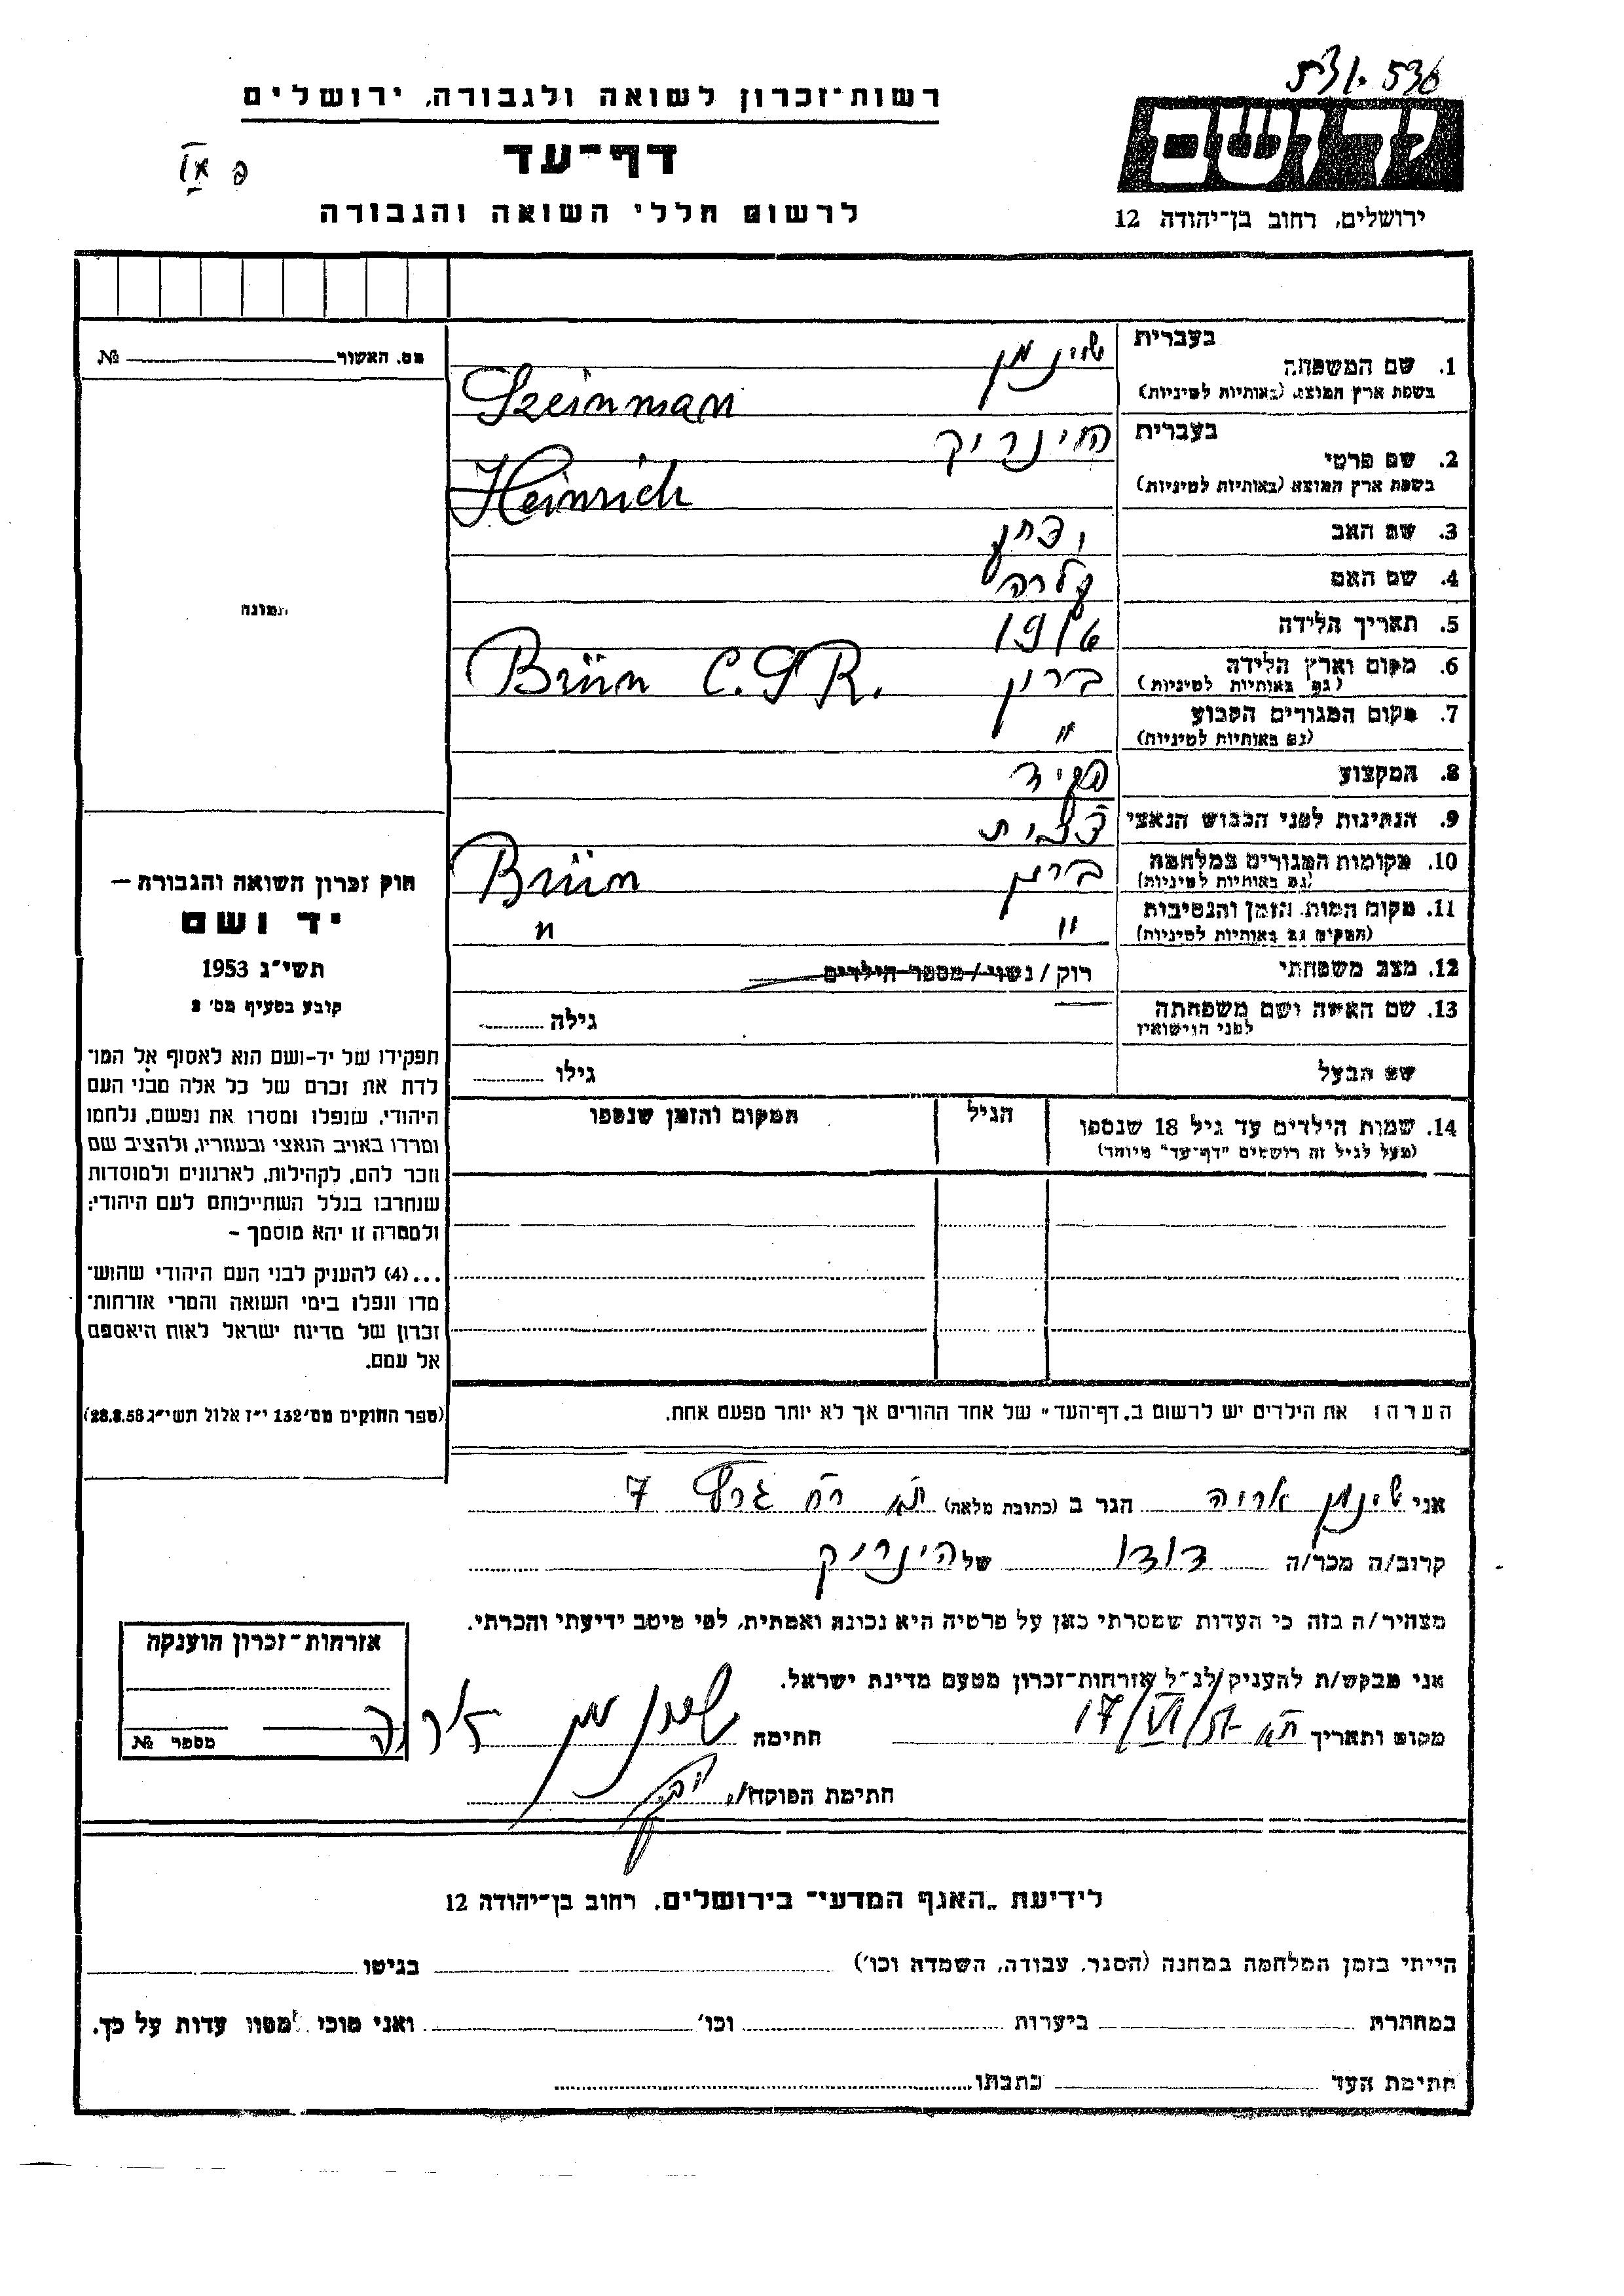 רשות-זכרון לשואה ולגבורה, ירושלים
דף-עד
לרשום חללי השואה והגבורה
יד ושם
ירושלים, רחוב בן-יהודה 12
מס. האשור № 
בעברית
1. שם המשפחה
(בשפת ארץ המוצא (באותיות לטיניות
שיינמן
Szeinman
בעברית
2. שם פרטי
בשפת ארץ המוצא (באותיות לטיניות)
היינריק
Heinrich
3. שם האב
4. שם האם קלרה
5. תאריך הלידה 1916
6. מקום וארץ הלידה ברין Brün C.S.R.
(גם באותיות לטיניות)
7. מקום המגורים הקבוע "
(גם באותיות לטיניות)
8. המקצוע פקיד
9. הנתינות לפני הכבוש הנאצי צ'כית
10. מקומות המגורים במלחמה ברין Brün
(גם באותיות לטיניות)
11. מקום המות, הזמן והנסיבות " "
(המקום גם באותיות לטיניות)
12. מצב משפחתי רוק / נשוי / מספר הילדים
13. שם האשה ושם משפחתה גילה
לפני הנישואין
שם הבעל גילו
14. שמות הילדים עד גיל 18 שנספו הגיל המקום והזמן שנספו
(מעל לגיל זה רושמים "דף-עד" מיוחד)
הערה: את הילדים יש לרשום ב"דף-העד" של אחד ההורים אך לא יותר מפעם אחת.
תמונה
חוק זכרון השואה והגבורה —
יד ושם
תשי"ג 1953
קובע בסעיף מס' 2
תפקידו של יד-ושם הוא לאסוף אל המו־
לדת את זכרם של כל אלה מבני העם
היהודי, שנפלו ומסרו את נפשם, נלחמו
ומרדו באויב הנאצי ובעוזריו, ולהציב שם
וזכר להם, לקהילות, לארגונים ולמוסדות
שנחרבו בגלל השתייכותם לעם היהודי;
ולמטרה זו יהא מוסמך –
...(4) להעניק לבני העם היהודי שהוש־
מדו ונפלו בימי השואה והמרי אזרחות־
זכרון של מדינת ישראל לאות היאספם
אל עמם.
(ספר החוקים מס' 132 י"ז אלול תשי"ג 28.8.53)
אני שינמן אריה הגר ב (כתובת מלאה) ת"א רח' 7
קרוב/ה מכר/ה דודו של הינריק
מצהיר/ה בזה כי העדות שמסרתי כאן על פרטיה היא נכונה ואמתית, לפי מיטב ידיעתי והכרתי.
אני מבקש/ת להעניק לנ"ל אזרחות-זכרון מטעם מדינת ישראל.
מקום ותאריך ת"א 17/VI/57 חתימה שיינמן אריה
חתימת הפוקד/ת
אזרחות-זכרון הוענקה
מספר №
לידיעת "האגף המדעי" בירושלים, רחוב בן-יהודה 12
הייתי בזמן המלחמה במחנה (הסגר, עבודה, השמדה וכו') בגיטו
במחתרת ביערות וכו' ואני מוכן למסור עדות על כך.
חתימת העד כתבתו